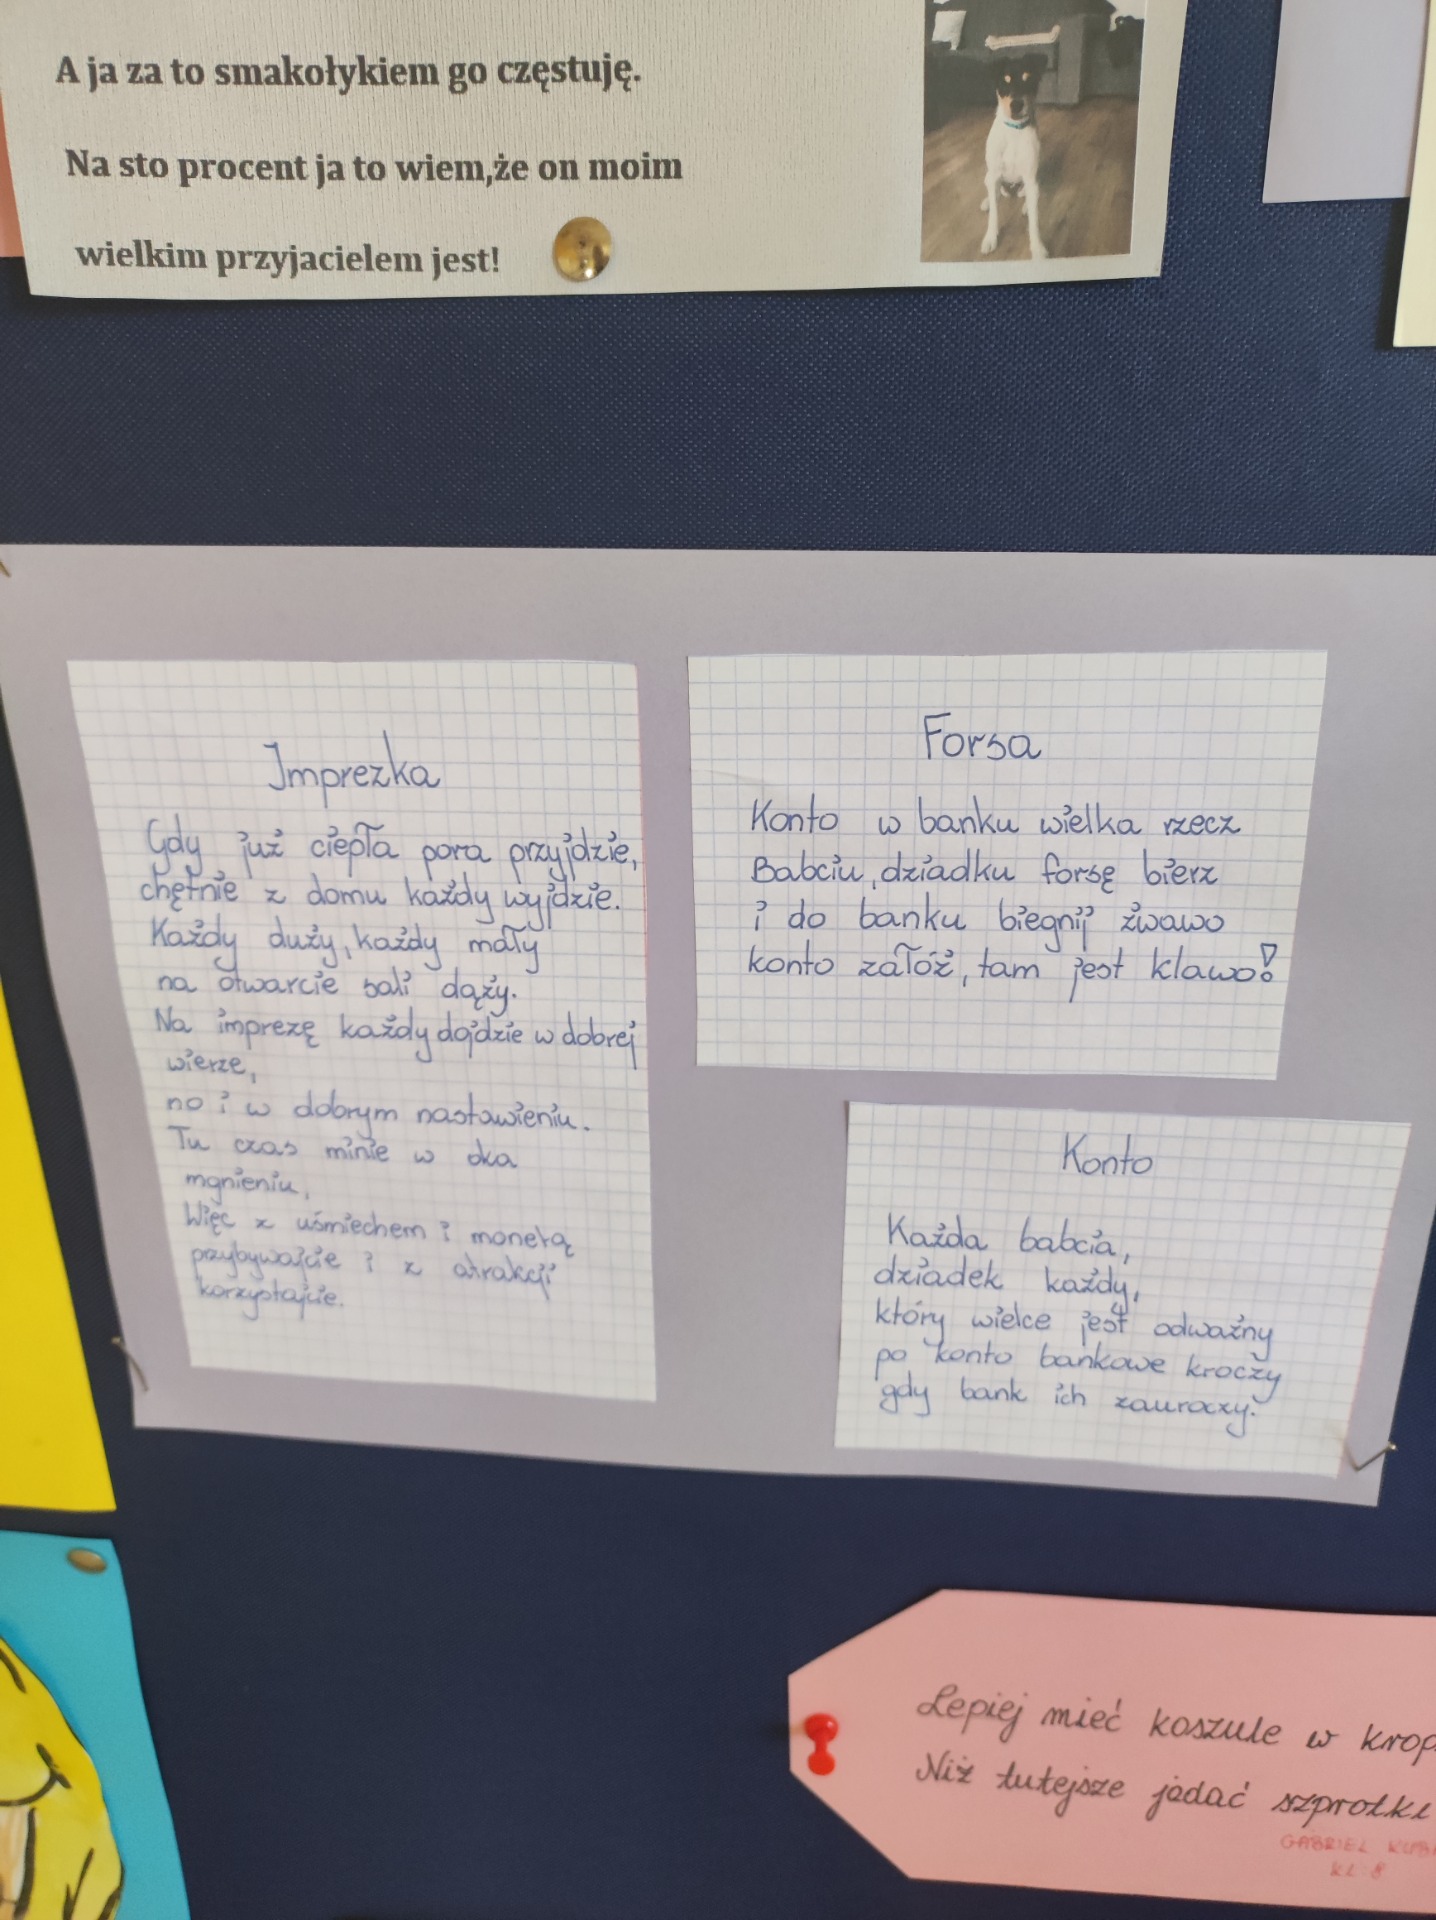 A ja za to smakołykiem go częstuję.
Na sto procent ja to wiem,że on moim
wielkim przyjacielem jest!
Imprezka
Gdy już ciepła pora przyjdzie,
chętnie z domu każdy wyjdzie.
Każdy duży, każdy mały
na otwarcie sali dąży.
Na imprezę każdy dojdzie w dobrej
wierze,
no i w dobrym nastawieniu.
Tu czas minie w oka
mgnieniu,
Więc z uśmiechem i monetą
przybywajcie i z atrakcji
korzystajcie.
Forsa
Konto w banku wielka rzecz
Babciu, dziadku forsę bierz
i do banku biegnij żwawo
konto załóż, tam jest klawo!
Konto
Każda babcia,
dziadek każdy,
który wielce jest odważny
po konto bankowe kroczy
gdy bank ich zauroczy.
Lepiej mieć koszule w krop
Niż tutejsze jadać szprotki
GABRIEL KUB
KL 8